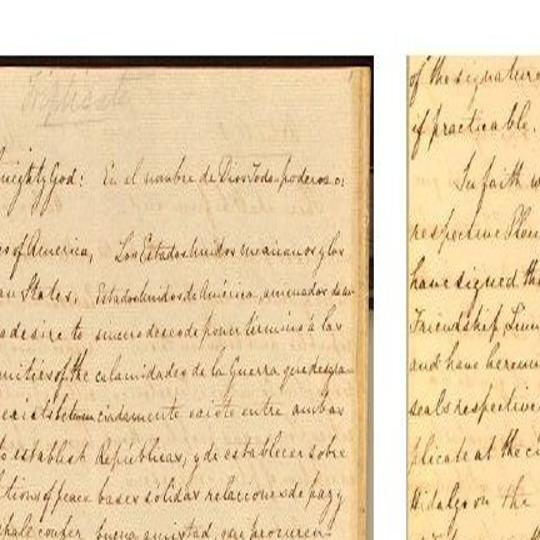 Triplicate
mighty God: En el nombre de Dios Todo-poderoso:
es of America, Los Estados Unidos mexicanos y los
an States, Estados Unidos de América, animados de un
a desire to sincero deseo de poner término á las
mities of the calamidades de la Guerra que desgra-
exists between ciadamente existe entre ambas
to establish Repúblicas, y de establecer sobre
lations of peace bases solidas relaciones de paz y
shall confer buena amistad, que procuren
of the signature
if practicable.
In faith w
respective Plen
have signed th
Friendship, Lim
and have hereun
seals respective
plicate at the ci
Hidalgo on the